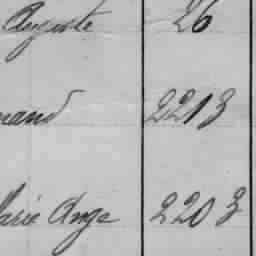 Auguste 26
mand 2213
Marie Ange 2203